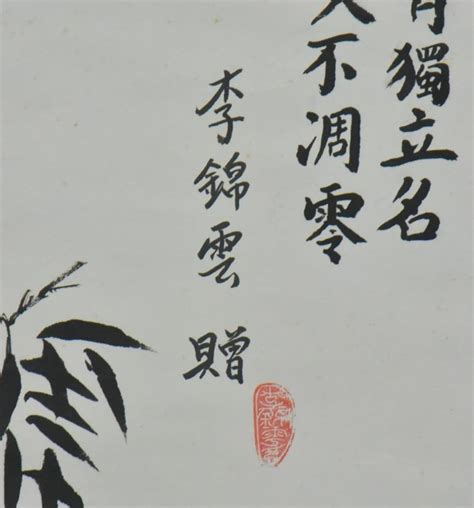 獨立名
不凋零
李錦雲 贈